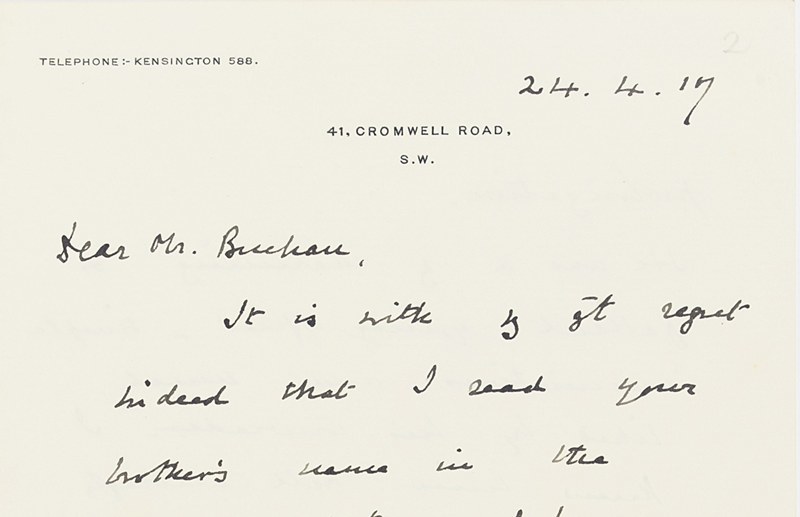 2
TELEPHONE:- KENSINGTON 588.
24. 4. 17
41, CROMWELL ROAD,
S.W.
Dear Mr. Buchan,
It is with vy gt regret
indeed that I read your
brother's name in the